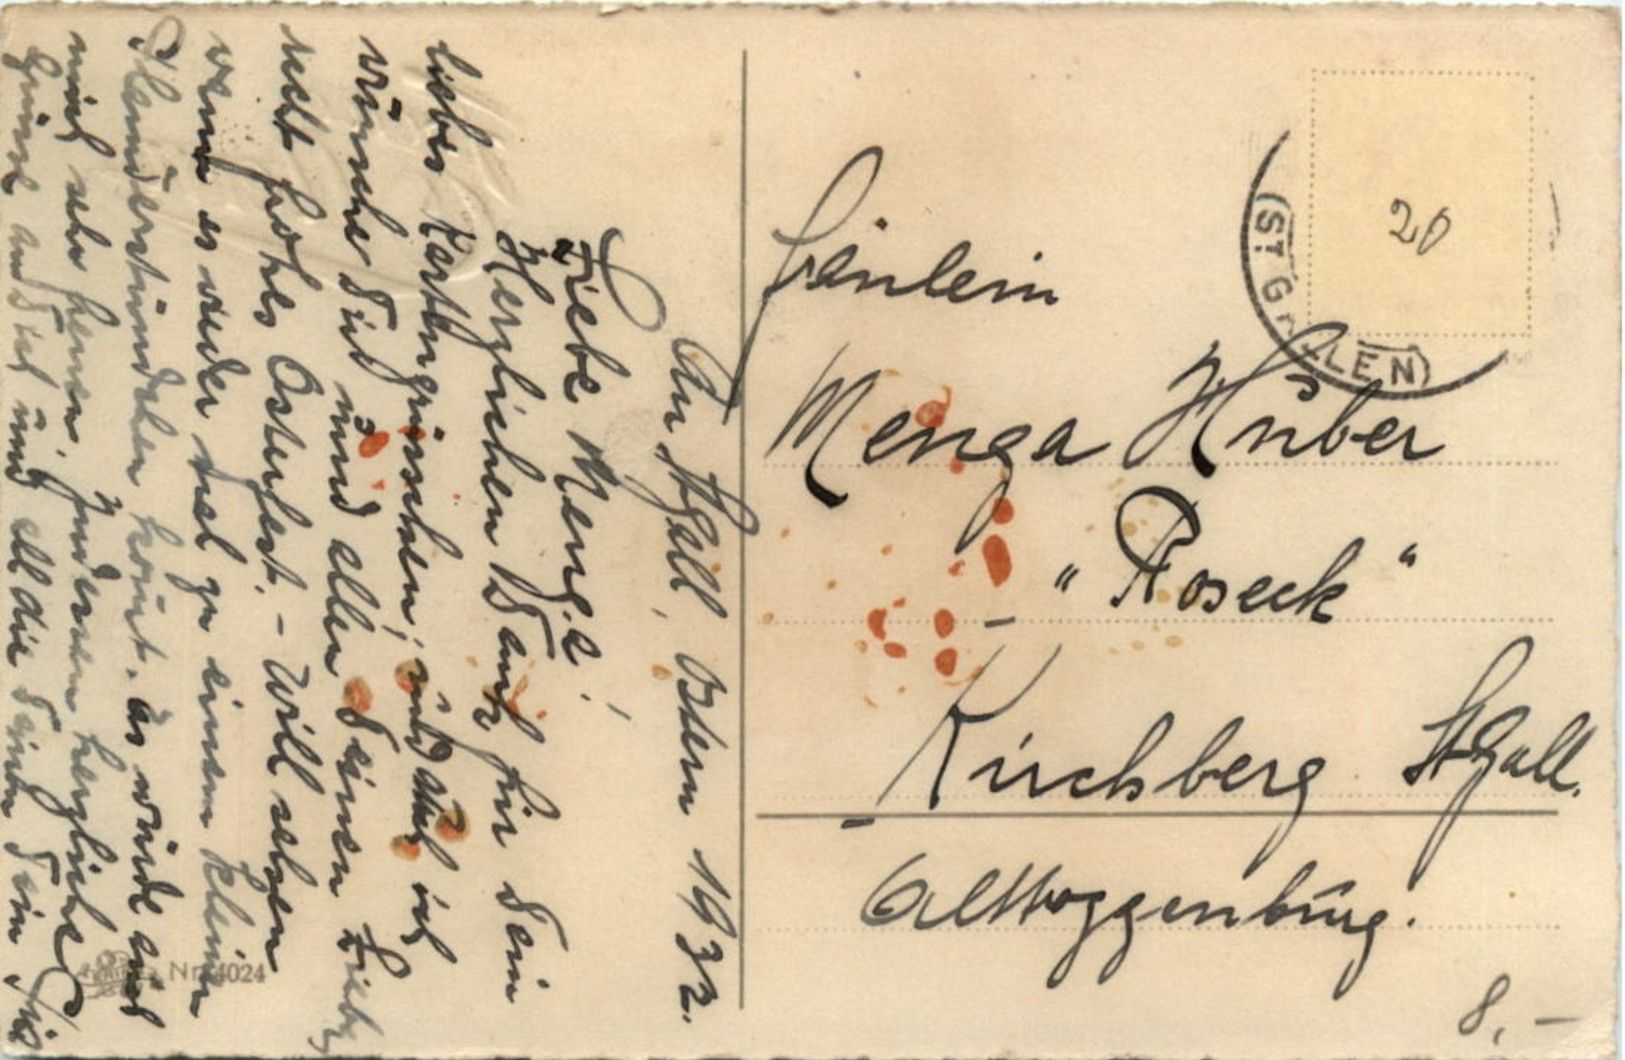 An St. Gall, Ostern 1932.
Liebe Menga!
Herzlichen Dank für Dein
liebes Kartengrüsschen, und auch ich
wünsche Dir und allen Deinen Lieben
recht frohes Osterfest. - Will sehen
wenn es wieder mal zu einem kleinen
Plauderstündchen kommt. es würde auch
mich sehr freuen. Indessen herzliche
Grüsse an Dich und all die Deinen Dein
Fräulein
Menga Huber
"Roseck"
Kirchberg St. Gall.
Alttoggenburg.
(ST. GALLEN)
20
Nr. 4024
8.-